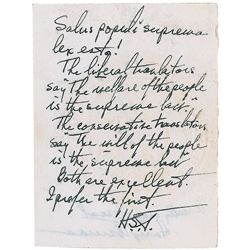 Salus populi suprema
lex esto!
The liberal translators
say "the welfare of the people
is the supreme law."
The conservative translators
say the will of the people
is the supreme law
Both are excellent.
I prefer the first.